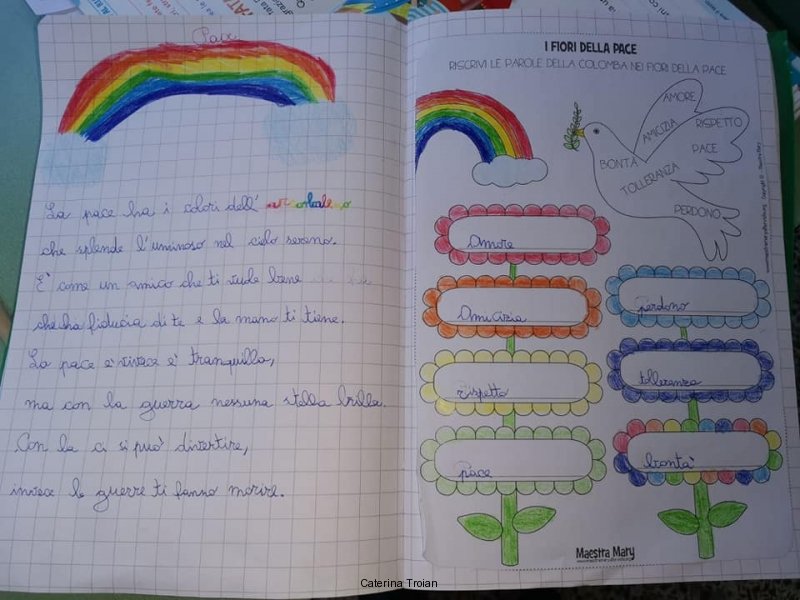 Pace
La pace ha i colori dell'arcobaleno
che splende l'uminoso nel cielo sereno.
È come un amico che ti vuole bene
che ha fiducia di te e la mano ti tiene.
La pace è vivace è tranquilla,
ma con la guerra nessuna stella brilla.
Con la ci si può divertire,
invece le guerre ti fanno morire.
I FIORI DELLA PACE
RISCRIVI LE PAROLE DELLA COLOMBA NEI FIORI DELLA PACE
AMORE
AMICIZIA
RISPETTO
BONTÀ
PACE
TOLLERANZA
PERDONO
Amore
Amicizia
rispetto
pace
perdono
tolleranza
bontà
Maestra Mary
Caterina Troian